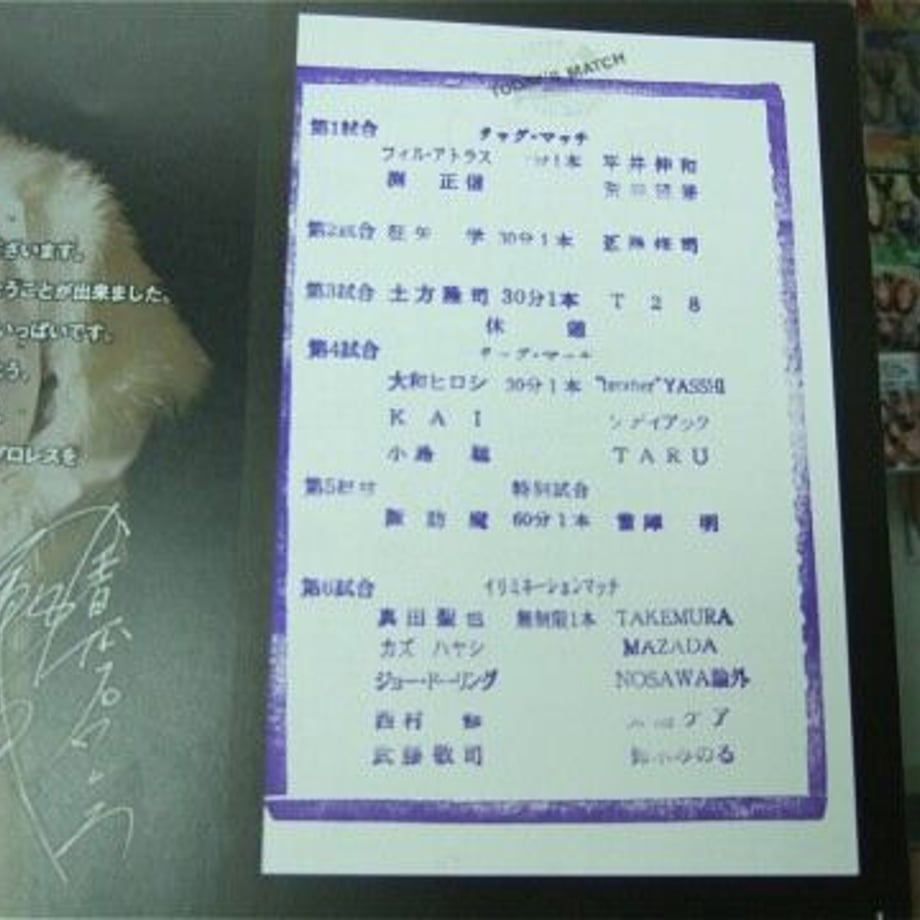 TODAY'S MATCH
第1試合 タッグ・マッチ
フィル・アトラス 1本 平井伸和
渕 正信
第2試合 征矢 学 30分1本 近藤修司
第3試合 土方隆司 30分1本 T28
休憩
第4試合 タッグ・マッチ
大和ヒロシ 30分1本 "brother"YASSHI
KAI ゾディアック
小路 TARU
第5試合 特別試合
諏訪魔 60分1本 雷陣 明
第6試合 イリミネーションマッチ
真田聖也 無制限1本 TAKEMURA
カズ ハヤシ MAZADA
ジョー・ドーリング NOSAWA論外
西村 修
武藤敬司 みのる
ざいます。
うことが出来ました。
いっぱいです。
プロレスを